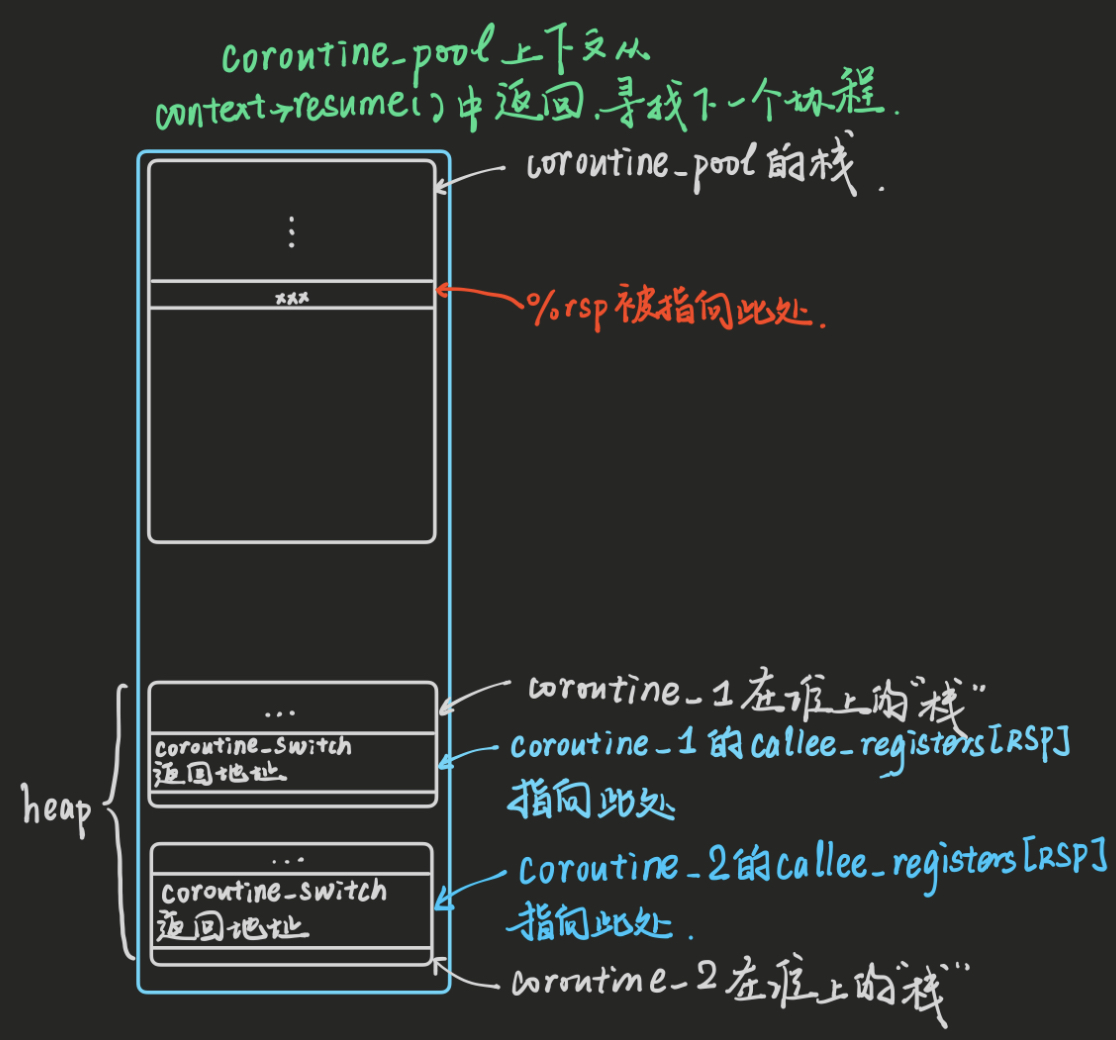 coroutine_pool 上下文从
context→resume()中返回,寻找下一个协程.
coroutine_pool 的栈.
⋮
xxx
%rsp 被指向此处.
...
coroutine_1在堆上的"栈"
coroutine_switch
返回地址
coroutine_1的callee_registers[RSP]
指向此处
heap
...
coroutine_switch
返回地址
coroutine_2的callee_registers[RSP]
指向此处.
coroutine_2在堆上的"栈"